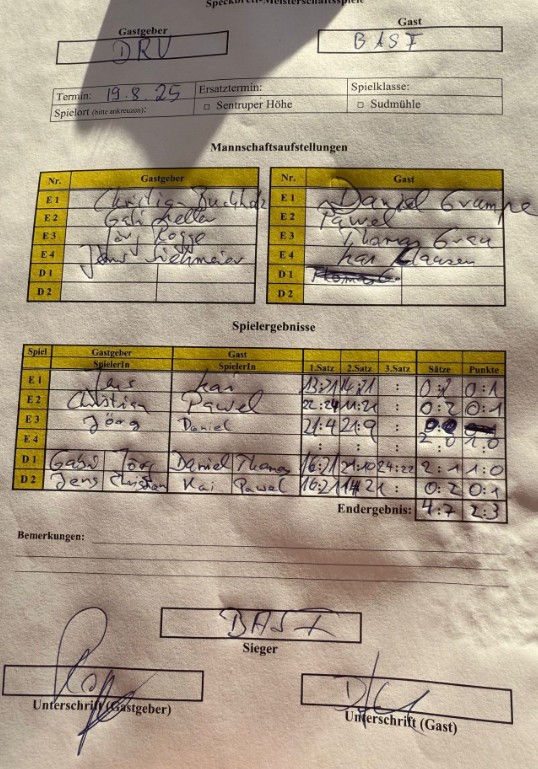 Speckbrett-Meisterschaftsspiele
Gastgeber Gast
DRV BASF
Termin: 19.8.25 Ersatztermin: Spielklasse:
Spielort (bitte ankreuzen): □ Sentruper Höhe □ Sudmühle
Mannschaftsaufstellungen
Nr. Gastgeber Nr. Gast
E 1 Christian Buchholz E 1 Daniel Grampe
E 2 Gabi Keller E 2 Pawel
E 3 Jörg Rogge E 3 Thomas
E 4 Jens E 4 Kai Klausen
D 1 D 1
D 2 D 2
Spielergebnisse
Spiel Gastgeber Gast
SpielerIn SpielerIn 1.Satz 2.Satz 3.Satz Sätze Punkte
E 1 Jens Kai 13:21 14:21 : 0:2 0:1
E 2 Christian Pawel 22:24 11:21 : 0:2 0:1
E 3 Jörg Daniel 21:4 21:9 :
E 4 : : : 2:0 1:0
D 1 Gabi Jörg Daniel Thomas 16:21 21:10 24:22 2:1 1:0
D 2 Jens Christian Kai Pawel 16:21 14:21 : 0:2 0:1
Endergebnis: 4:7 2:3
Bemerkungen:
BASF
Sieger
Unterschrift (Gastgeber) Unterschrift (Gast)